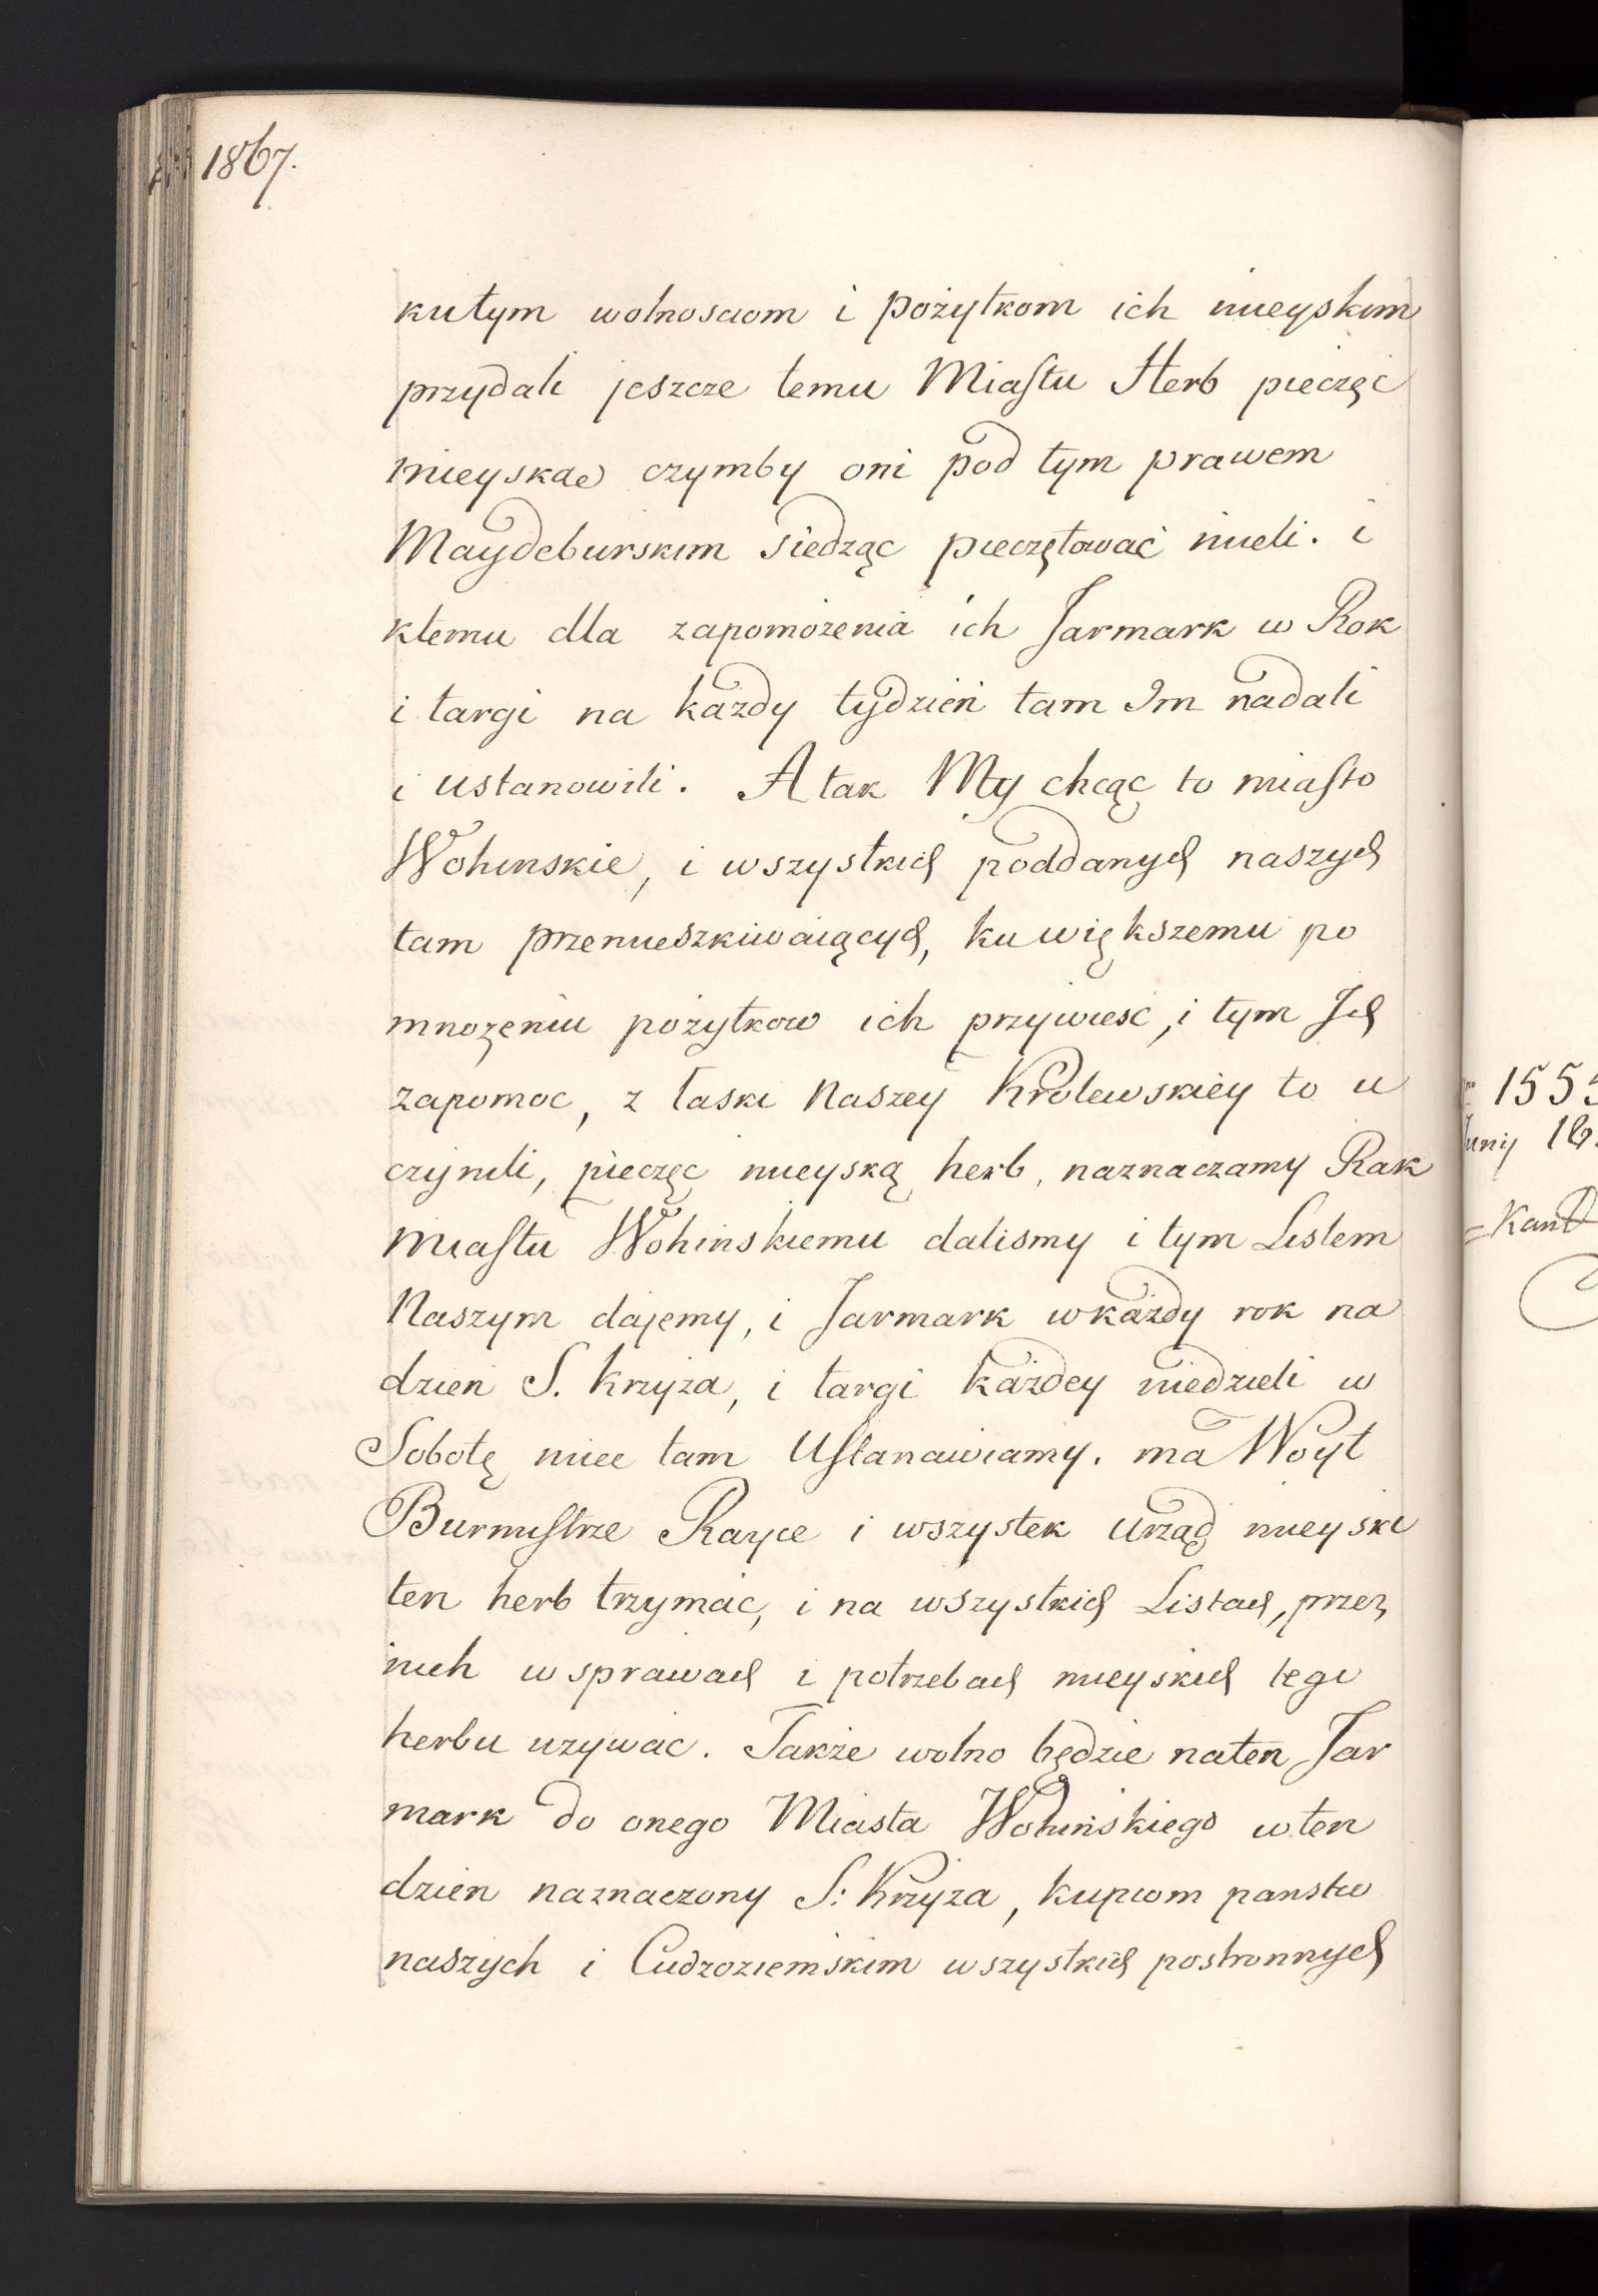 1867.
kutym wolnosciom i pożytkom ich mieyskim
przydali jeszcze temu Miastu Herb pieczęc
mieyskae czymby oni pod tym prawem
Maydeburskim siedząc pieczętować mieli. i
ktemu dla zapomożenia ich Jarmark w Rok
i targi na każdy tydzień tam Im nadali
i ustanowili. A tak My chcąc to miasto
Wohinskie, i wszystkich poddanych naszych
tam przemieszkiwaiących, ku większemu po
mnożeniu pożytkow ich przywiesć, i tym Ich
zapomoc, z łaski Naszey Krolewskiey to u
czynili, pieczęc mieyską herb, naznaczamy Rak
miastu Wohinskiemu dalismy i tym Listem
Naszym dajemy, i Jarmark wkażdy rok na
dzien S. Krzyża, i targi każdey niedzieli w
Sobotę miec tam Ustanawiamy. ma Woyt
Burmistrze Rayce i wszystek Urząd mieyski
ten herb trzymać, i na wszystkich Listach, przez
nich w sprawach i potrzebach mieyskich tego
herbu uzywac. Także wolno będzie naten Jar
mark do onego Miasta Wohińskiego wten
dzien naznaczony S: Krzyża, kupcom panstw
naszych i Cudzoziemskim wszystkich postronnych
1555
Juny 16.
=Kant